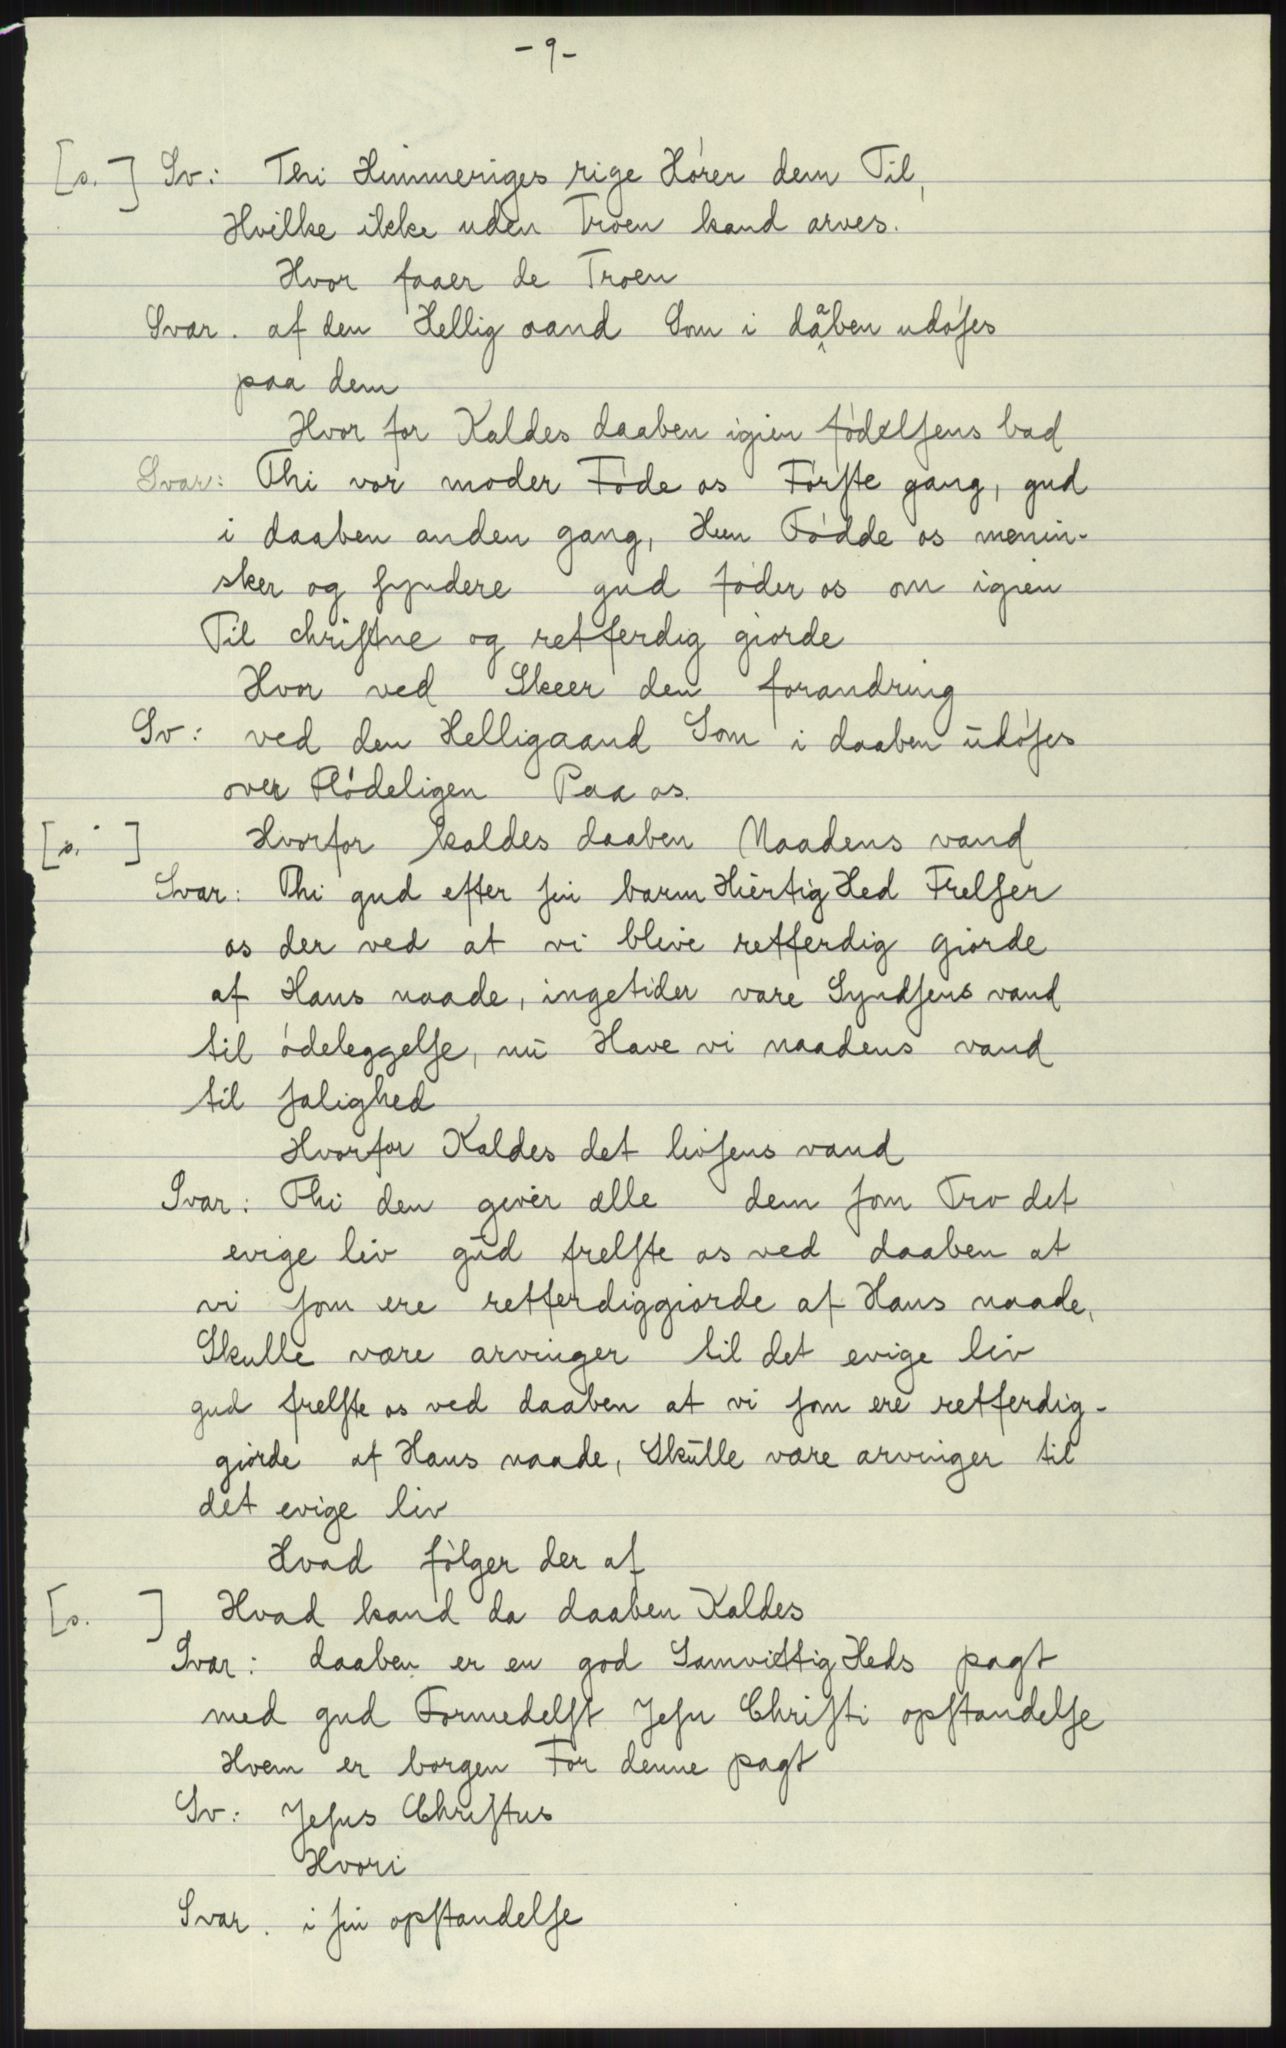 - 9 -
[s. ] Sv: Thi Himmeriges rige Hører dem Til,
Hvilke ikke uden Troen kand arves.
Hvor faaer de Troen
Svar. af den Hellig aand Som i daaben udøses
paa dem
Hvor for Kaldes daaben igien fødelsens bad
Svar: Thi vor moder Føde os Første gang, gud
i daaben anden gang, Hun Fødde os menin-
sker og syndere gud føder os om igien
Til christne og retferdig giorde
Hvor ved Skeer den forandring
Sv: ved den Helligaand Som i daaben ūdøses
over Flødeligen Paa os.
[s. ] Hvorfor kaldes daaben Naadens vand
Svar: Thi gud efter sin barm Hiertig Hed Frelser
os der ved at vi blive retferdig giorde
af Hans naade, ingetider vare Syndsens vand
til ødeleggelse, nū Have vi naadens vand
til salighed
Hvorfor Kaldes det livsens vand
Svar: Thi den giver alle dem som Tro det
evige liv gūd frelste os ved daaben at
vi som ere retferdiggiorde af Hans naade,
Skulle være arvinger til det evige liv
gud frelste os ved daaben at vi som ere retferdig-
giorde af Hans naade, Skūlle være arvinger til
det evige liv
Hvad følger der af
[s. ] Hvad kand da daaben Kaldes
Svar: daaben er en god Samvittig Heds pagt
med gud Formedelst Jesu Christi opstandelse
Hvem er borgen For denne pagt
Sv: Jesus Christus
Hvori
Svar. i sin opstandelse